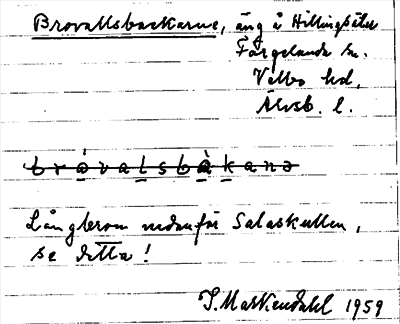 Brovallsbackarne, äng å Hillingsäter
Färgelanda sn.
Valbo hd,
Älvsb. l.
bròvalsbàkanə
Långbrom nedanför Salaskullen,
se detta!
J. Markendahl 1959